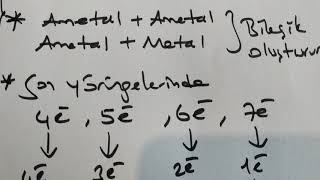 * Ametal + Ametal } Bileşik
Ametal + Metal } oluşturur
* Son yörüngelerinde
4ē , 5ē , 6ē , 7ē
↓ ↓ ↓ ↓
4ē 3ē 2ē 1ē